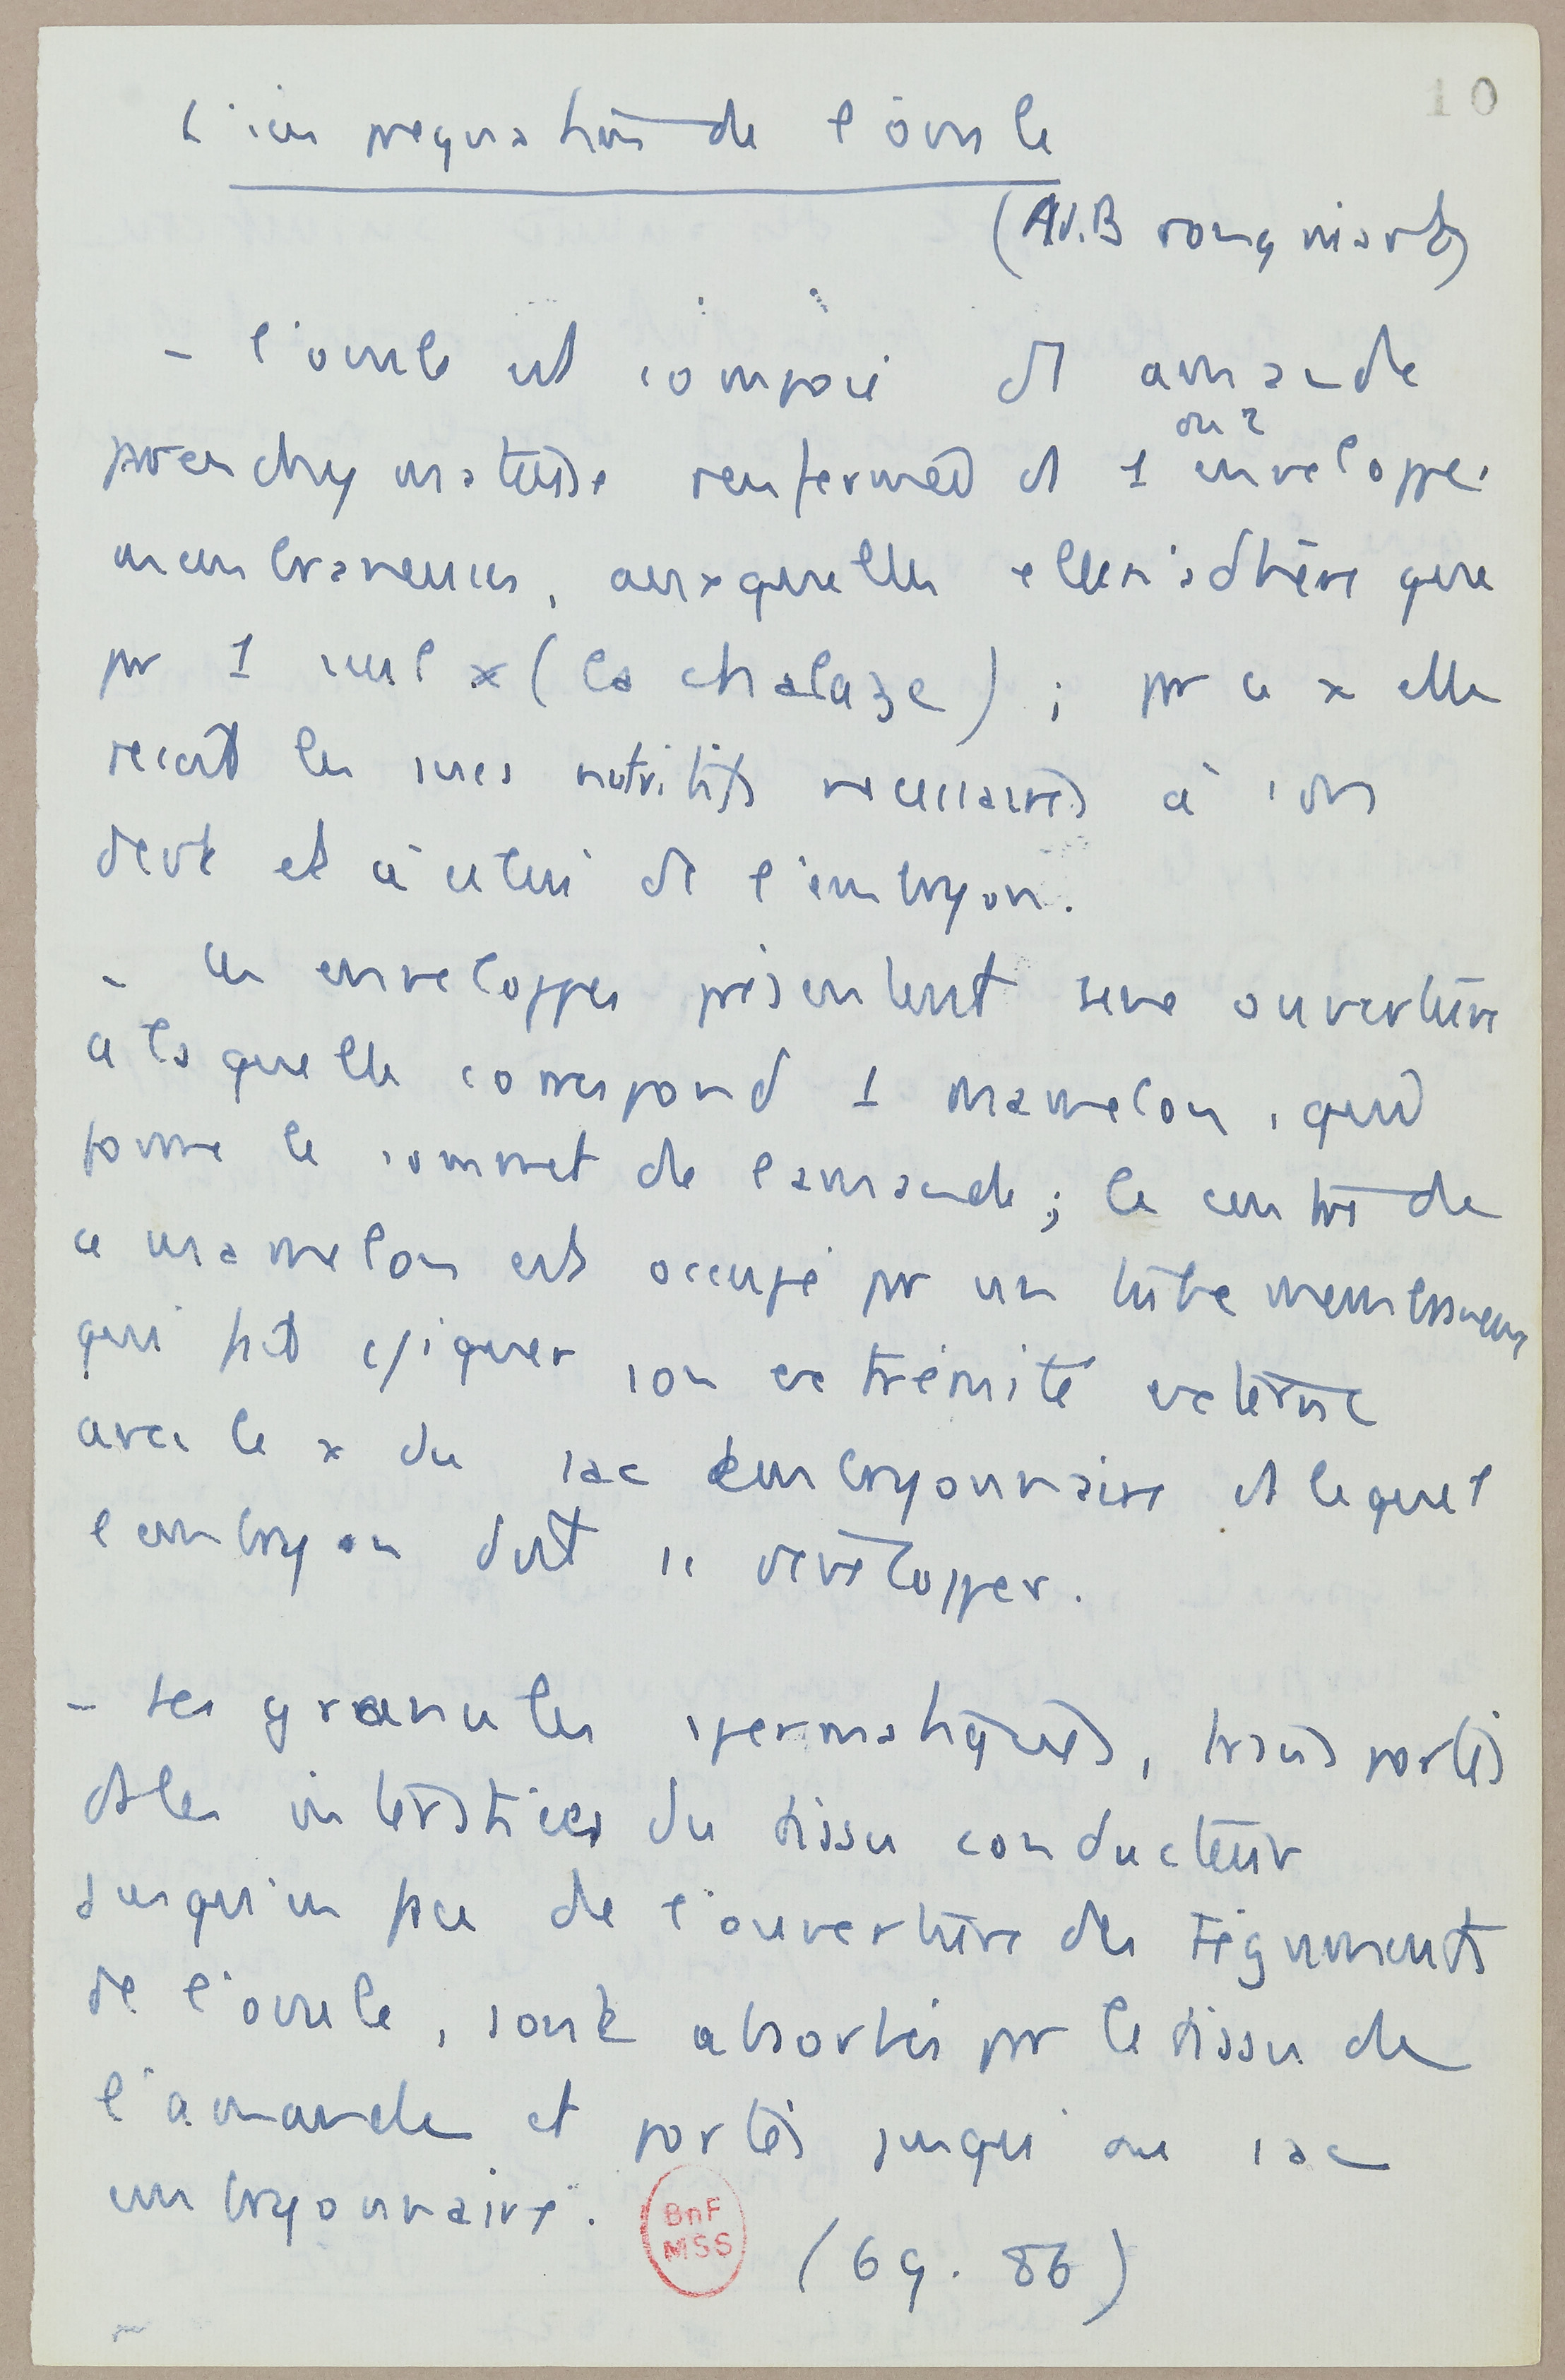 10
L'impregnation de l'ovule
(Ad. Brongniart)
- l'ovule est composé d'1 amande
parenchymateuse renfermée ds 1 ou 2 enveloppes
membraneuses, auxquelles elle n'adhère que
pr 1 seul x (la chalaze) ; pr ce x elle
reçoit les sucs nutritifs necessaires à son
devt et à celui de l'embryon.
- Ces enveloppes présentent une ouverture
a laquelle correspond 1 mamelon, qui
forme le sommet de l'amande ; le centre de
ce mamelon est occupé pr un tube membraneux
qui fait cpiquer son extrémité externe
avec le x du sac embryonnaire ds lequel
l'embryon doit se developper.
- Les granules spermatiques, transportés
ds les interstices du tissu conducteur
jusqu'en face de l'ouverture des téguments
de l'ovule, sont absorbés pr le tissu de
l'amande et portés jusqu'au sac
embryonnaire.
BnF
MSS
(69. 86)